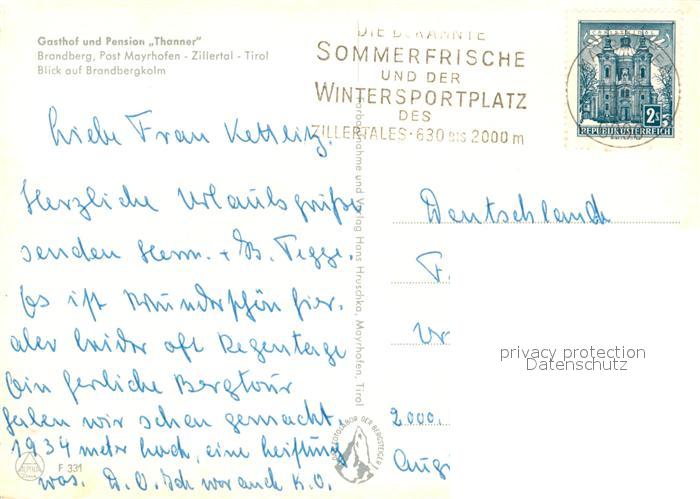 Gasthof und Pension „Thanner"
Brandberg, Post Mayrhofen - Zillertal - Tirol
Blick auf Brandbergkolm
DIE BEKANNTE
SOMMERFRISCHE
UND DER
WINTERSPORTPLATZ
DES
ZILLERTALES · 630 BIS 2000 m
CHRISTKINDL
2S
REPUBLIK ÖSTERREICH
Liebe Frau Kettlitz.
Herzliche Urlaubsgrüße
senden Herm. + B. Tegge.
Es ist wunderschön hier.
aber leider oft Regentage
Ein herliche Bergtour
haben wir schon gemacht,
1934 meter hoch, eine
was. D. O. Ich war auch K.O.
Farbaufnahme und Verlag Hans Hruschka, Mayrhofen, Tirol
Deutschland
F.
2000.
privacy protection
Datenschutz
FOTOLABOR DER BERGSTEIGER
ALPINA
F 331